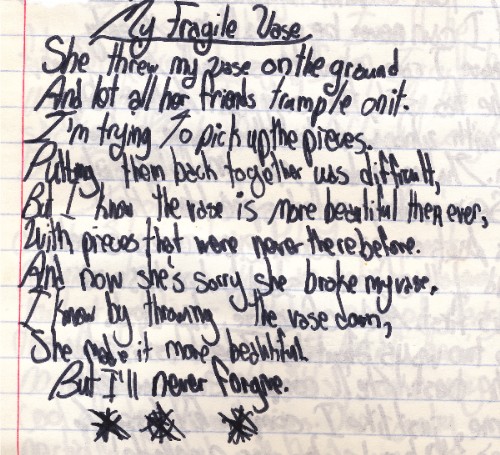 My Fragile Vase
She threw my vase on the ground
And let all her friends trample on it.
I'm trying to pick up the pieces.
Putting them back together was difficult,
But I know the vase is more beautiful then ever,
With pieces that were never there before.
And now she's sorry she broke my vase,
I know by throwing the vase down,
She made it more beautiful.
But I'll never forgive.